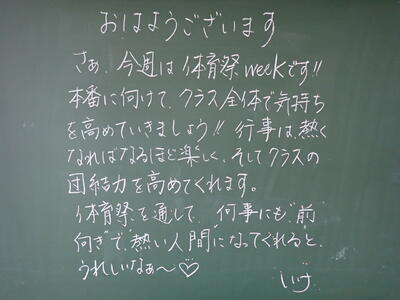 おはようございます
さぁ、今週は体育祭weekです!!
本番に向けて、クラス全体で気持ち
を高めていきましょう!! 行事は、熱く
なればなるほど楽しく、そしてクラスの
団結力を高めてくれます。
体育祭を通して、何事にも"前
向き"で"熱い人間"になってくれると、
うれしいなぁ〜♡